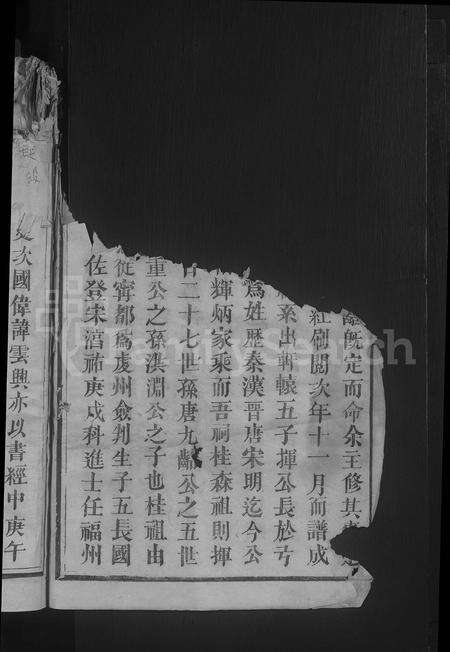 既定而命余主修其
劂閱次年十一月而譜成
系出軒轅五子揮公長於弓
爲姓歷秦漢晉唐宋明迄今公
輝炳家乘而吾祠桂森祖則揮
二十七世孫唐九齡公之五世
重公之孫淇淵公之子也桂祖由
從寧都爲虔州僉判生子五長國
佐登宋淳祐庚戌科進士任福州
次國偉諱雲興亦以書經中庚午
FamilySearch